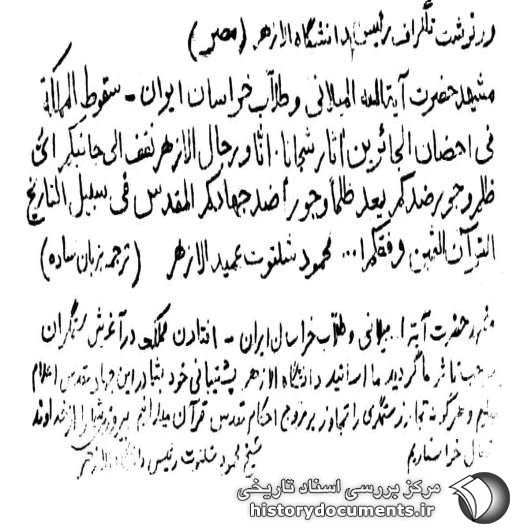 رونوشت تلگراف رئیس دانشگاه الازهر (مصر)
مشهد حضرت آیة الله المیلانی و طلاب خراسان ایوان - سقوط المملکة
فی احضان الجائرین اثار شجانا. اننا و رجال الازهر نقف الی جانبکم ای
ظلم و جور ضدکم یعد ظلما و جورا ضد جهادکم المقدس فی سبیل التاریخ
القرآن الثمین وفقکم ا... محمود شلتوت عمید الازهر (ترجمه بزبان ساده)
مشهد حضرت آیة ا... میلانی و طلاب خراسان ایران - افتادن مملکت در آغوش ستمگران
موجب تاثر ما گردید ما اساتید دانشگاه الازهر پشتیبانی خود بشما در این جهاد مقدس اعلام
و هرگونه تجاوز ستمگری را تجاوز بر احکام مقدس قرآن میدانیم پیروزی شما را از خداوند
متعال خواستاریم شیخ محمود شلتوت رئیس دانشگاه الازهر
مرکز بررسی اسناد تاریخی
historydocuments.ir